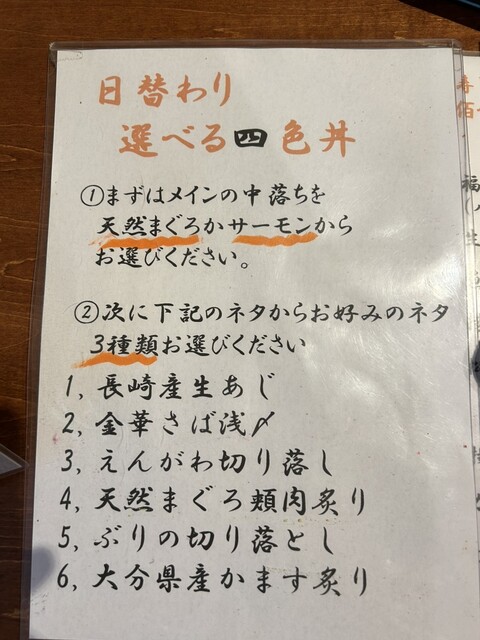 日替わり
選べる四色丼
①まずはメインの中落ちを
天然まぐろかサーモンから
お選びください。
②次に下記のネタからお好みのネタ
3種類お選びください
1, 長崎産生あじ
2, 金華さば浅〆
3, えんがわ切り落し
4, 天然まぐろ頬肉炙り
5, ぶりの切り落とし
6, 大分県産かます炙り